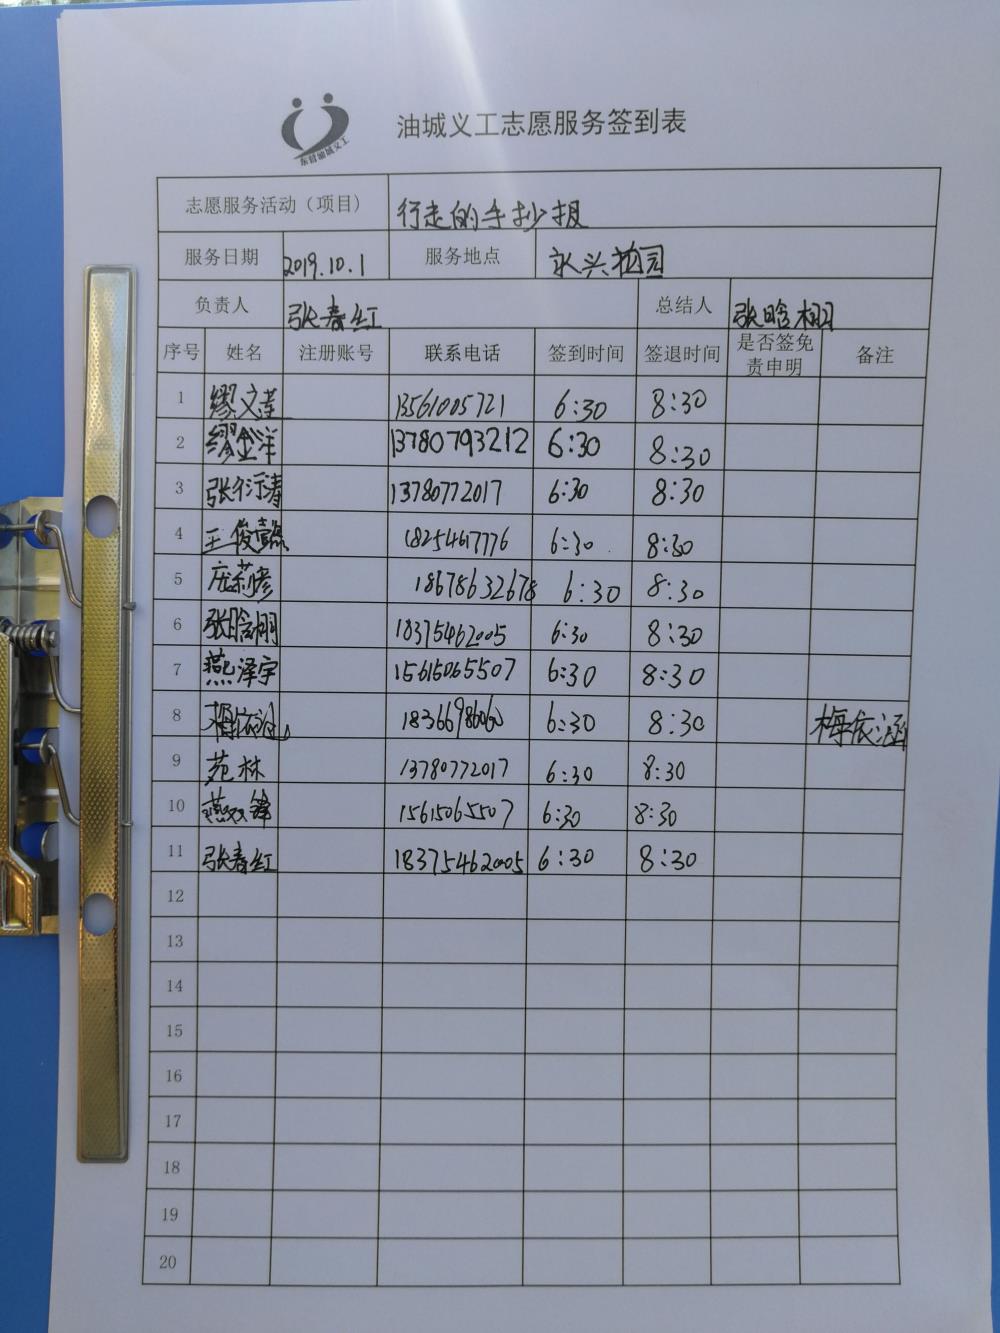 东营油城义工
油城义工志愿服务签到表
志愿服务活动（项目） 行走的手抄报
服务日期 2019.10.1 服务地点 永兴花园
负责人 张春红 总结人 张晗栩
序号 姓名 注册账号 联系电话 签到时间 签退时间 是否签免责申明 备注
1 缪文莲 13561005721 6:30 8:30
2 缪金洋 13780793212 6:30 8:30
3 张衍涛 13780772017 6:30 8:30
4 王俊懿 18254617776 6:30 8:30
5 庄莉彦 18678632678 6:30 8:30
6 张晗栩 18375462005 6:30 8:30
7 燕泽宇 15615065507 6:30 8:30
8 梅依涵 6:30 8:30 梅依涵
9 苑林 13780772017 6:30 8:30
10 燕双锋 15615065507 6:30 8:30
11 张春红 18375462005 6:30 8:30
12
13
14
15
16
17
18
19
20